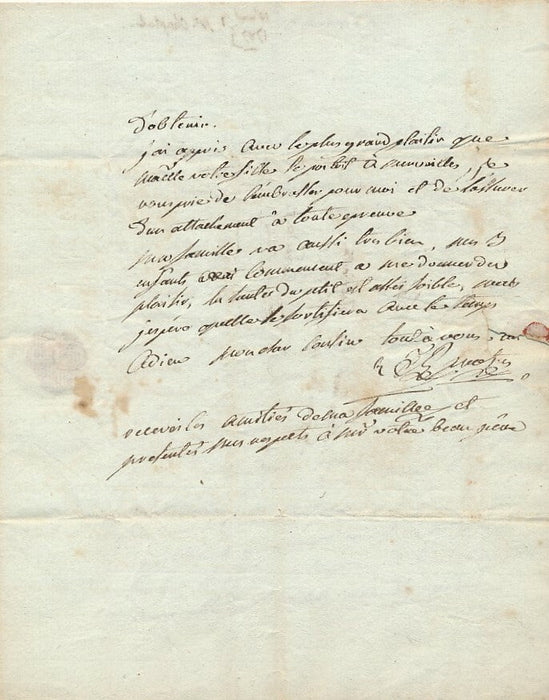 d'obtenir.
j'ai appris avec le plus grand plaisir que
votre fille se portait à merveille, je
vous prie de l'embrasser pour moi et de l'assurer
d'un attachement à toute epreuve
ma famille va aussi tres bien, mes 3
enfants commencent a me donner du
plaisir, la santé du ptit est assés foible, mais
j'espère quelle se fortifiera avec le tems
Adieu mon cher cousin tout à vous
recevés les amitiés de ma famille et
presentés mes respects à Mr votre beau père